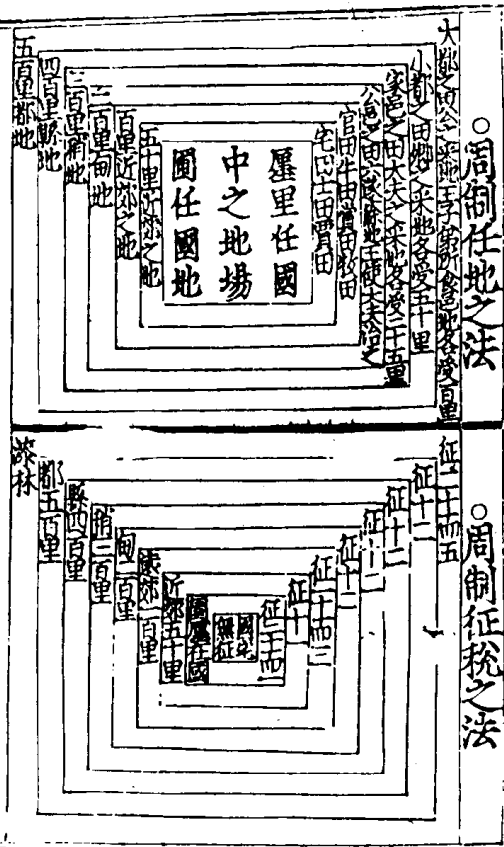 ○周制任地之法
大都之田公之采地王子弟所食邑地各受百里
小都之田卿之采地各受五十里
家邑之田大夫之采地各受二十五里
公邑之田六遂餘地王使大夫治之
官田牛田賞田牧田
宅田士田賈田
廛里任國
中之地場
圃任國地
五十里近郊之地
百里近郊之地
二百里甸地
三百里稍地
四百里縣地
五百里都地
○周制征稅之法
征二十而五
征十二
征十二
征十二
征十二
征二十而三
征十一
征二十而一
國宅
無征
園廛在國
近郊五十里
遠郊一百里
甸二百里
稍三百里
縣四百里
都五百里
漆林